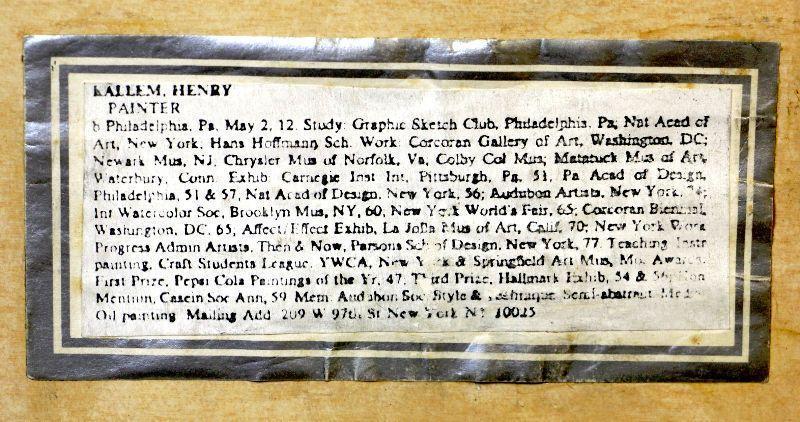 KALLEM, HENRY
PAINTER
b Philadelphia, Pa, May 2, 12. Study: Graphic Sketch Club, Philadelphia, Pa; Nat Acad of
Art, New York; Hans Hoffmann Sch. Work: Corcoran Gallery of Art, Washington, DC;
Newark Mus, NJ; Chrysler Mus of Norfolk, Va; Colby Col Mus; Matatuck Mus of Art,
Waterbury, Conn. Exhib: Carnegie Inst Int, Pittsburgh, Pa, 51; Pa Acad of Design,
Philadelphia, 51 & 57; Nat Acad of Design, New York, 56; Audubon Artists, New York, 74;
Int Watercolor Soc, Brooklyn Mus, NY, 60; New York World's Fair, 65; Corcoran Biennial,
Washington, DC, 65; Affect/Effect Exhib, La Jolla Mus of Art, Calif, 70; New York Work
Progress Admin Artists, Then & Now, Parsons Sch of Design, New York, 77. Teaching: Instr
painting, Craft Students League, YWCA, New York & Springfield Art Mus, Mo. Awards:
First Prize, Pepsi Cola Paintings of the Yr, 47; Third Prize, Hallmark Exhib, 54 & 56; Hon
Mention, Casein Soc Ann, 59. Mem: Audubon Soc. Style & Technique: Semi-abstract. Media:
Oil painting. Mailing Add: 209 W 97th St New York NY 10025